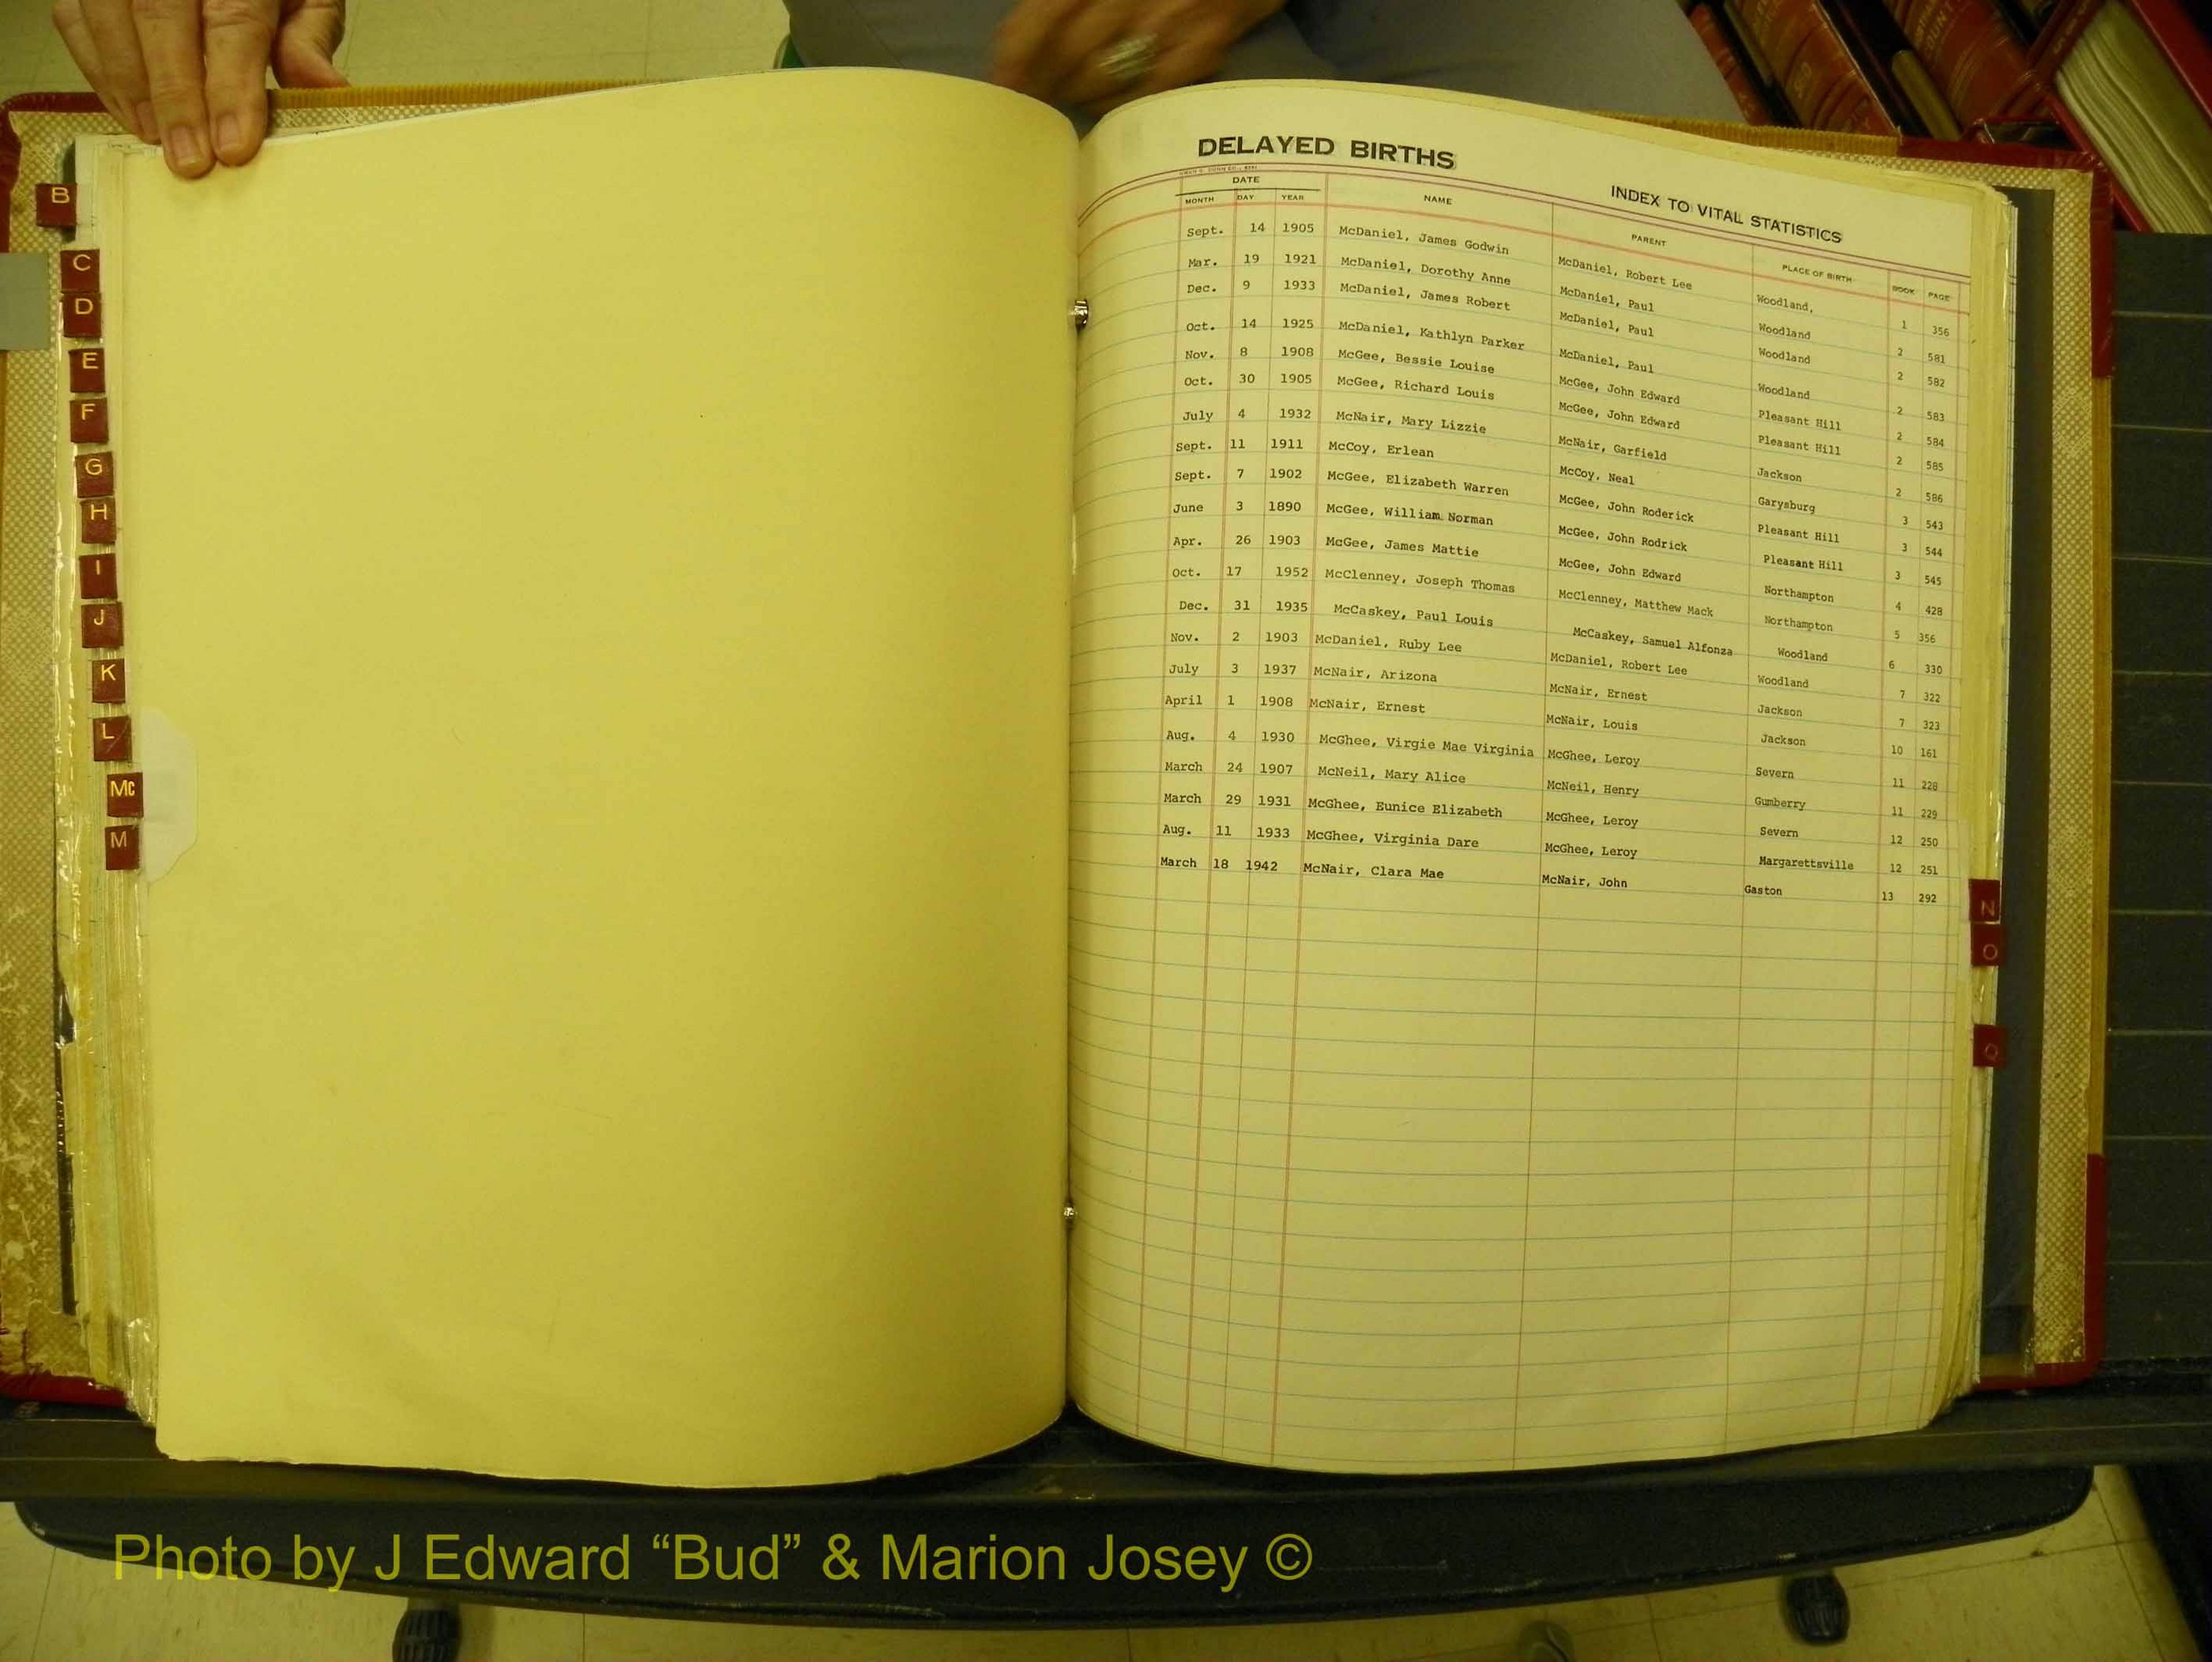 B
C
D
E
F
G
H
I
J
K
L
Mc
M
DELAYED BIRTHS
INDEX TO VITAL STATISTICS
DATE
MONTH DAY YEAR NAME PARENT PLACE OF BIRTH BOOK PAGE
Sept. 14 1905 McDaniel, James Godwin McDaniel, Robert Lee Woodland, 1 356
Mar. 19 1921 McDaniel, Dorothy Anne McDaniel, Paul Woodland 2 581
Dec. 9 1933 McDaniel, James Robert McDaniel, Paul Woodland 2 582
Oct. 14 1925 McDaniel, Kathlyn Parker McDaniel, Paul Woodland 2 583
Nov. 8 1908 McGee, Bessie Louise McGee, John Edward Pleasant Hill 2 584
Oct. 30 1905 McGee, Richard Louis McGee, John Edward Pleasant Hill 2 585
July 4 1932 McNair, Mary Lizzie McNair, Garfield Jackson 2 586
Sept. 11 1911 McCoy, Erlean McCoy, Neal Garysburg 3 543
Sept. 7 1902 McGee, Elizabeth Warren McGee, John Roderick Pleasant Hill 3 544
June 3 1890 McGee, William Norman McGee, John Rodrick Pleasant Hill 3 545
Apr. 26 1903 McGee, James Mattie McGee, John Edward Northampton 4 428
Oct. 17 1952 McClenney, Joseph Thomas McClenney, Matthew Mack Northampton 5 356
Dec. 31 1935 McCaskey, Paul Louis McCaskey, Samuel Alfonza Woodland 6 330
Nov. 2 1903 McDaniel, Ruby Lee McDaniel, Robert Lee Woodland 7 322
July 3 1937 McNair, Arizona McNair, Ernest Jackson 7 323
April 1 1908 McNair, Ernest McNair, Louis Jackson 10 161
Aug. 4 1930 McGhee, Virgie Mae Virginia McGhee, Leroy Severn 11 228
March 24 1907 McNeil, Mary Alice McNeil, Henry Gumberry 11 229
March 29 1931 McGhee, Eunice Elizabeth McGhee, Leroy Severn 12 250
Aug. 11 1933 McGhee, Virginia Dare McGhee, Leroy Margarettsville 12 251
March 18 1942 McNair, Clara Mae McNair, John Gaston 13 292
N
O
Q
Photo by J Edward “Bud” & Marion Josey ©